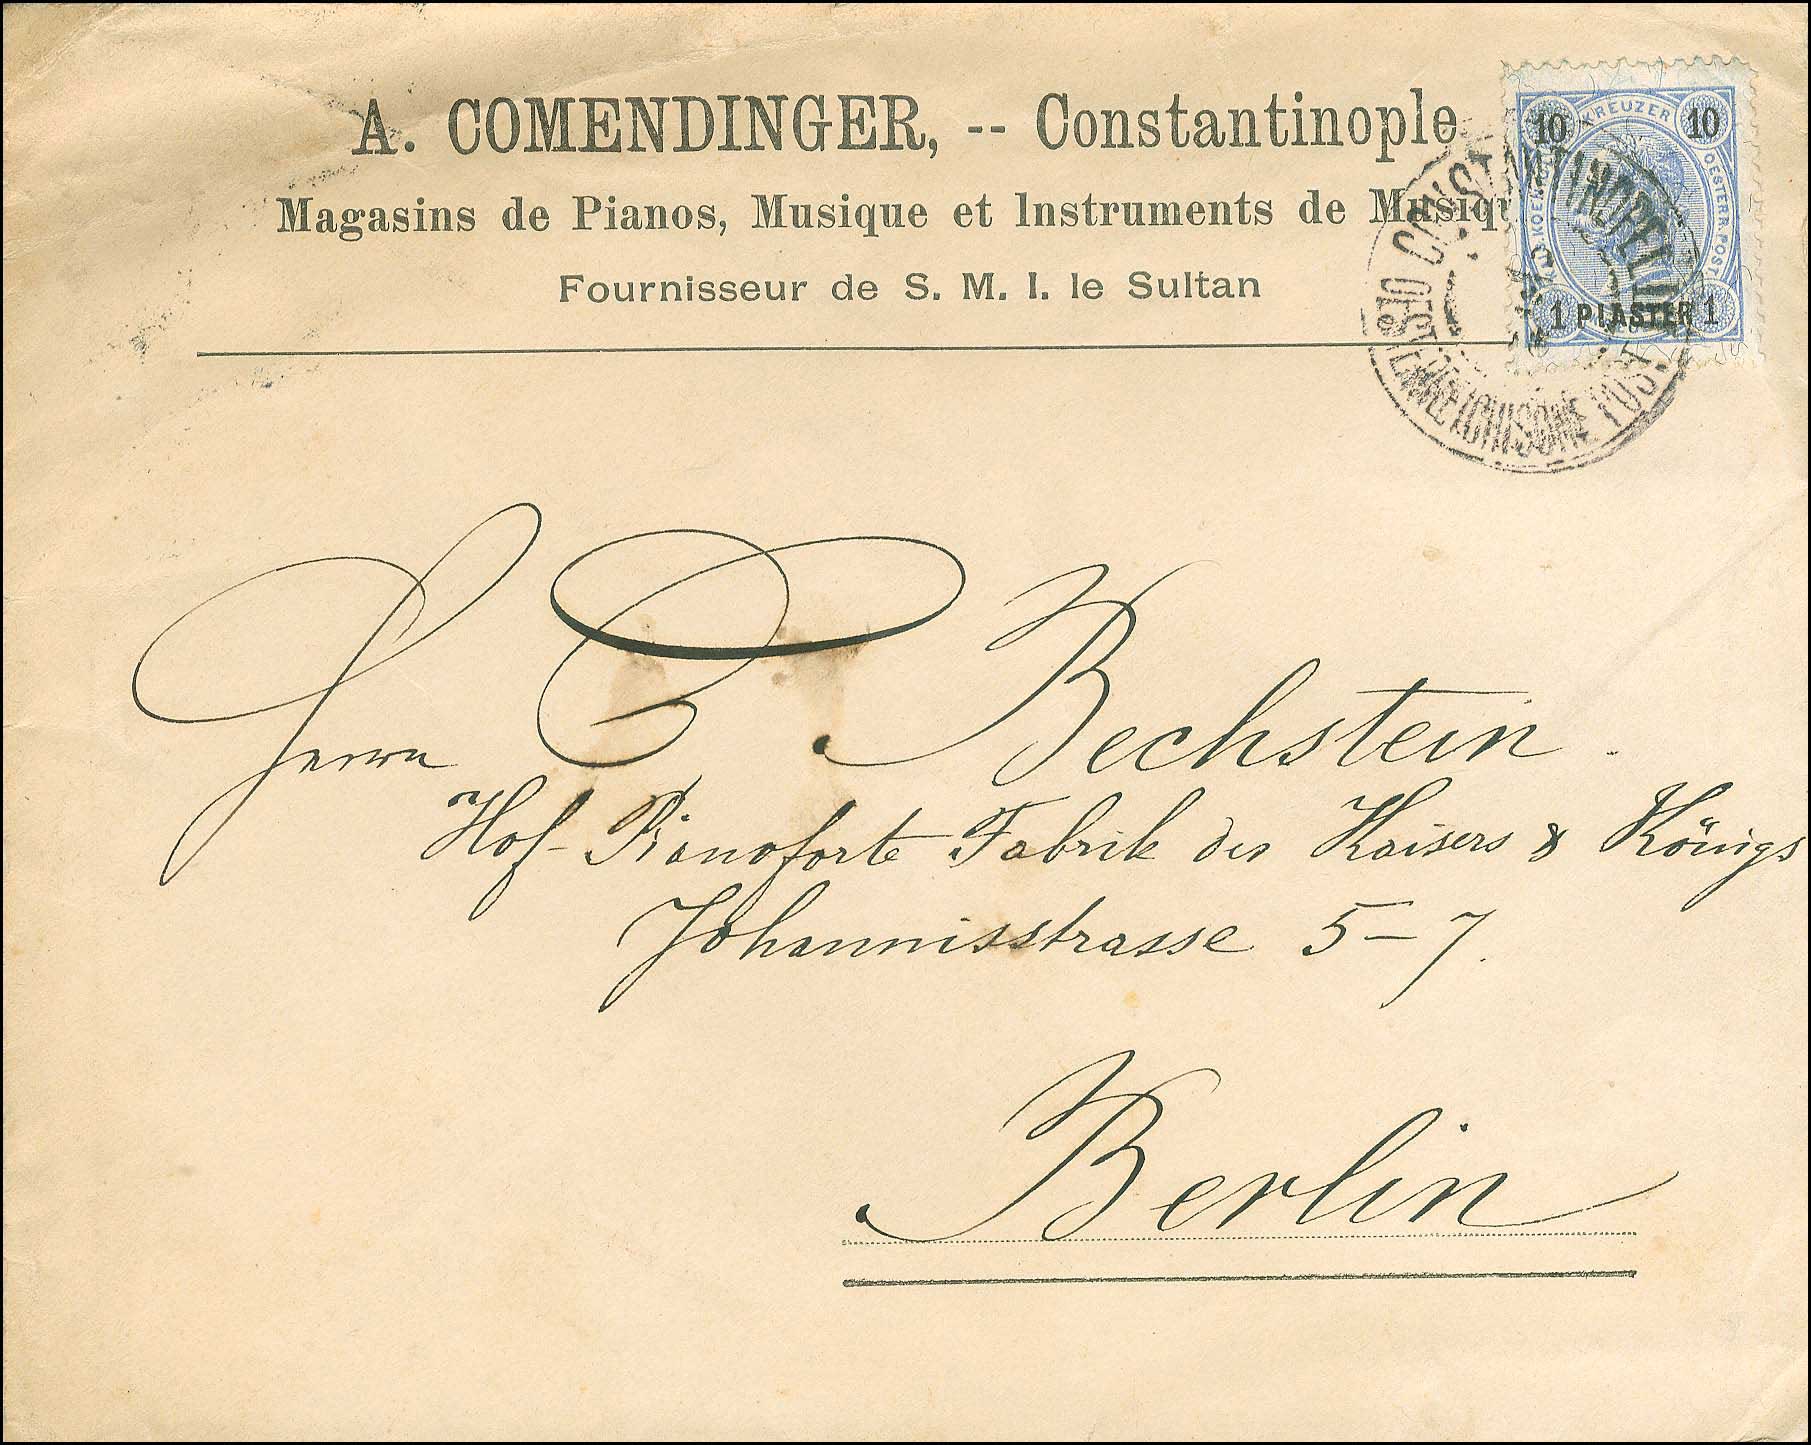 A. COMENDINGER, -- Constantinople
Magasins de Pianos, Musique et Instruments de Musiqu
Fournisseur de S. M. I. le Sultan
10 KREUZER 10
OESTERR. POST.
1 PIASTER 1
CONSTANTINOPEL
OESTERREICHISCHE POST
Herrn C Bechstein.
Hof-Pianoforte Fabrik des Kaisers & Königs
Johannisstrasse 5-7.
Berlin